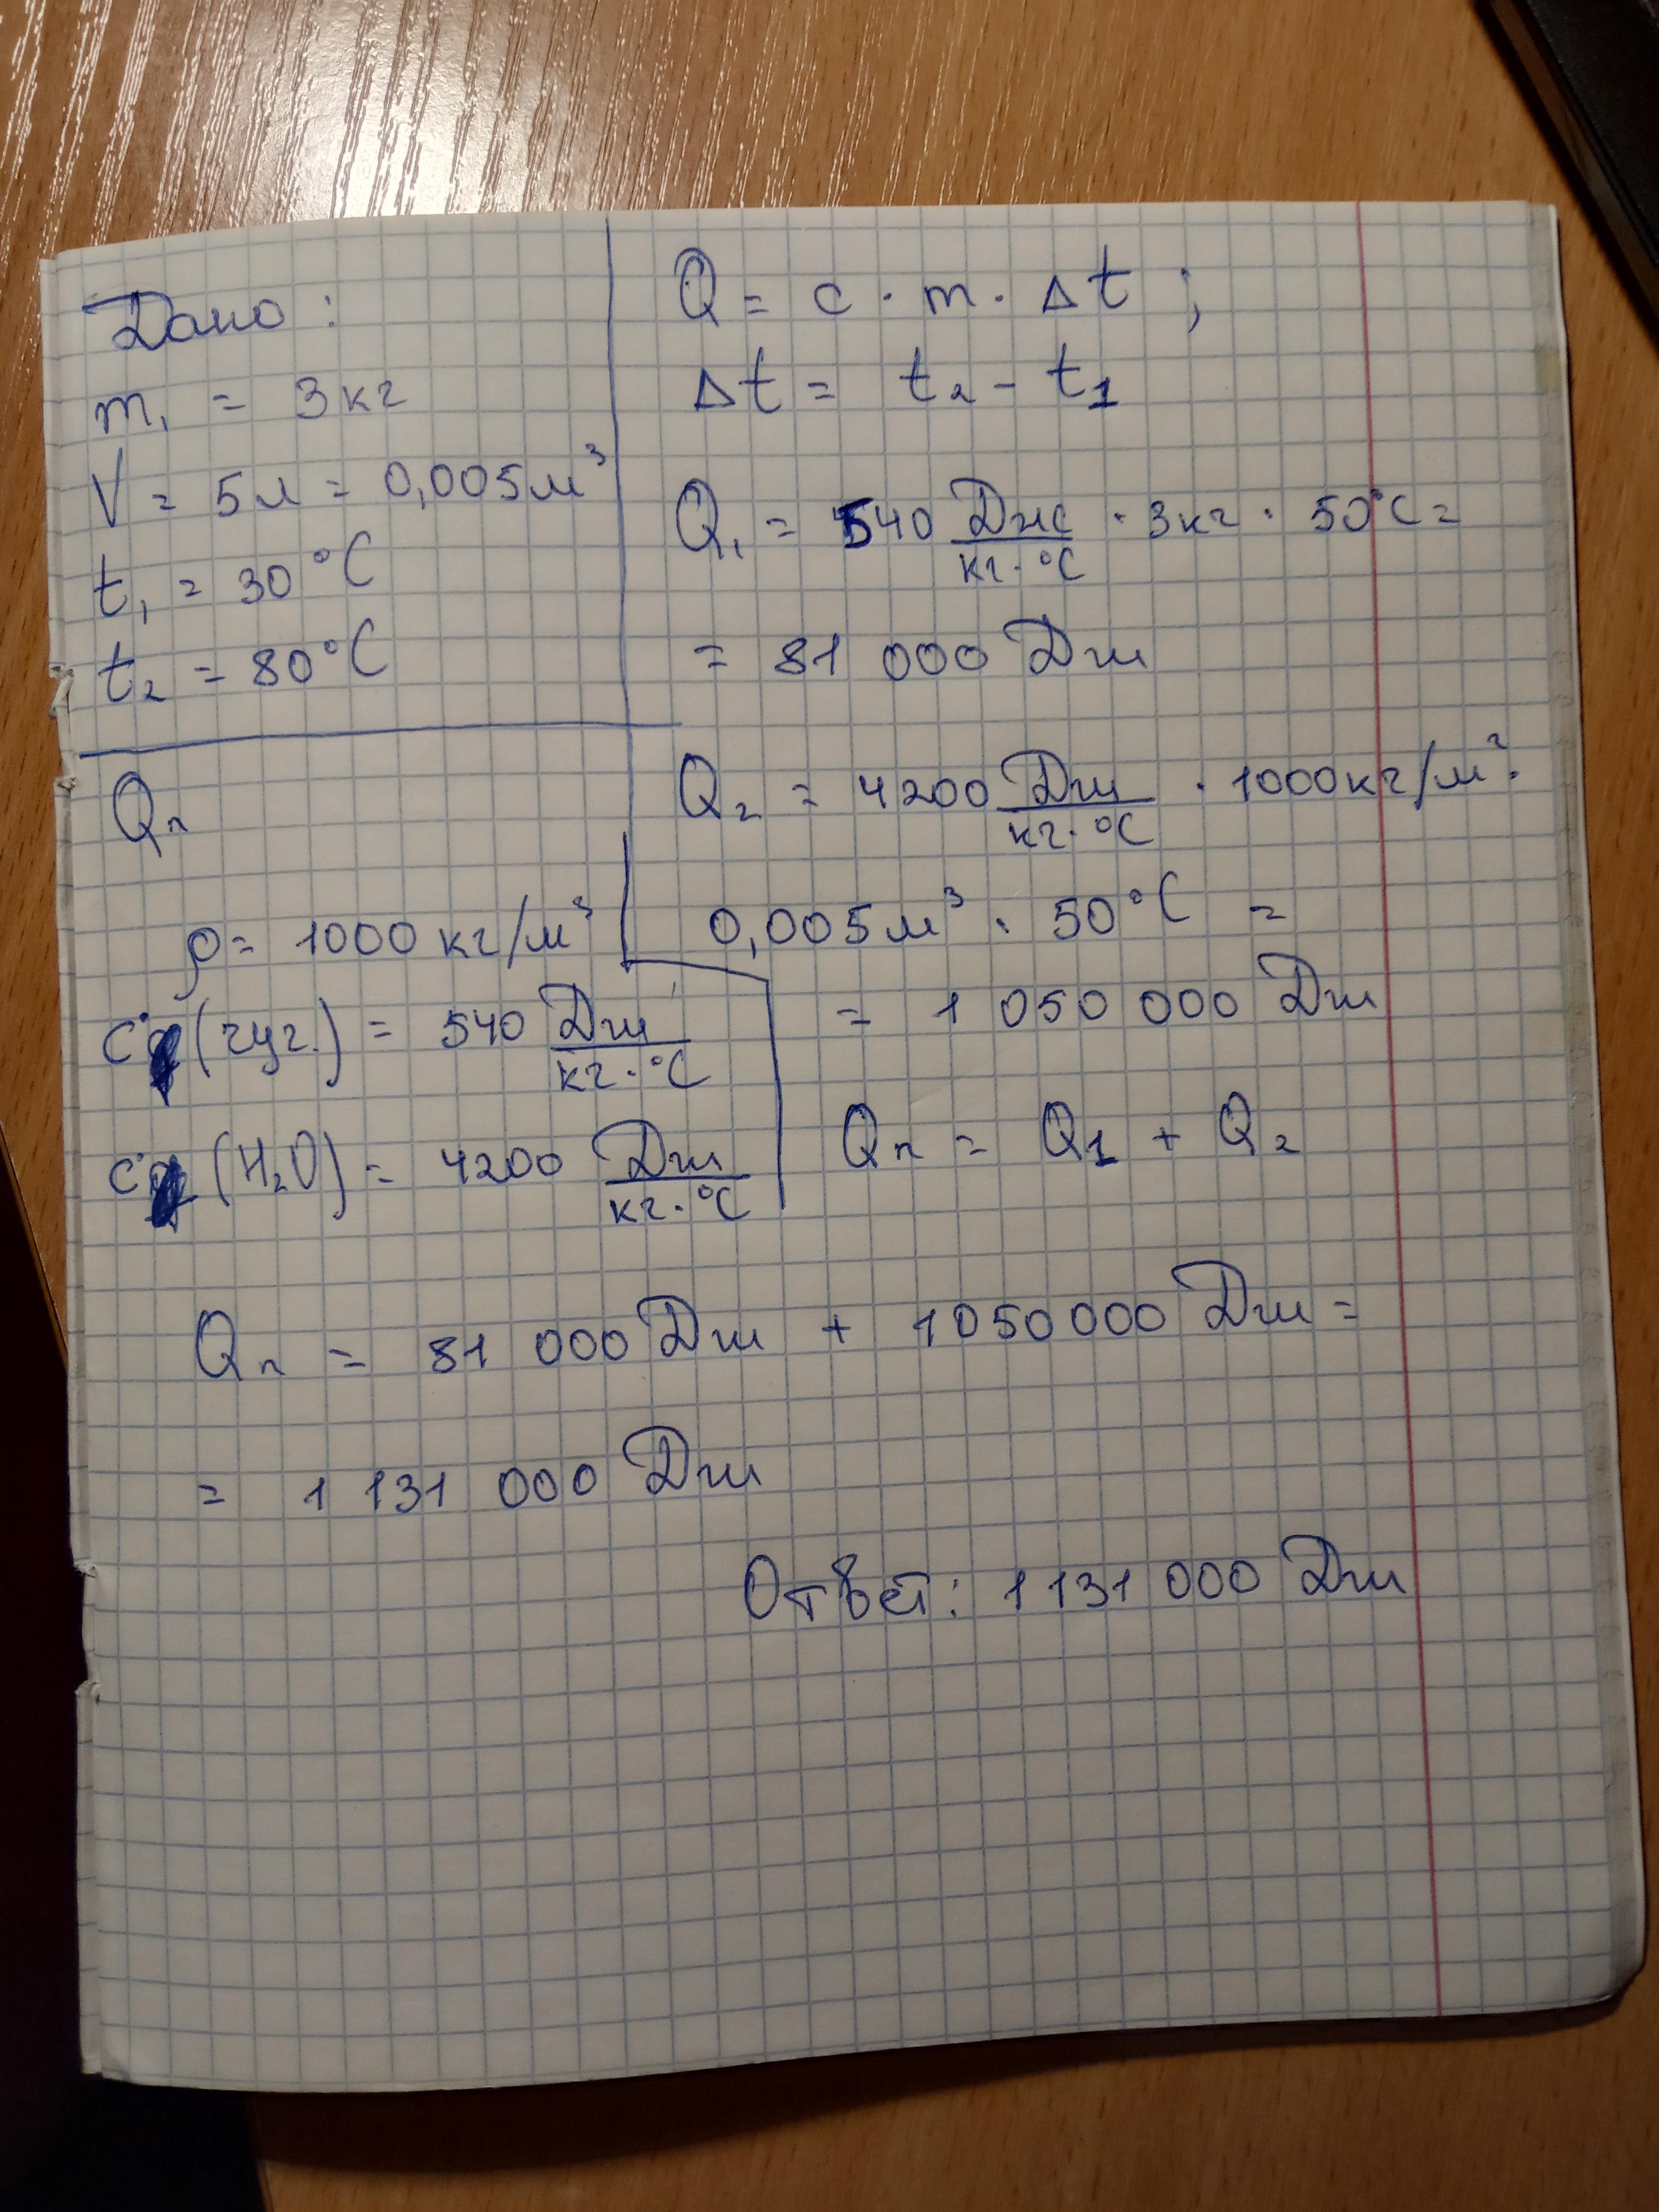 Дано:
m₁ = 3кг
V = 5л = 0,005м³
t₁ = 30°C
t₂ = 80°C
Qп
ρ = 1000 кг/м³
c (чуг.) = 540 Дж/кг·°C
c (H₂O) = 4200 Дж/кг·°C
Q = c · m · Δt ;
Δt = t₂ - t₁
Q₁ = 540 Дж/кг·°C · 3кг · 50°C =
= 81 000 Дж
Q₂ = 4200 Дж/кг·°C · 1000кг/м³ ·
0,005м³ · 50°C =
= 1 050 000 Дж
Qп = Q1 + Q₂
Qп = 81 000 Дж + 1050000 Дж =
= 1 131 000 Дж
Ответ: 1 131 000 Дж